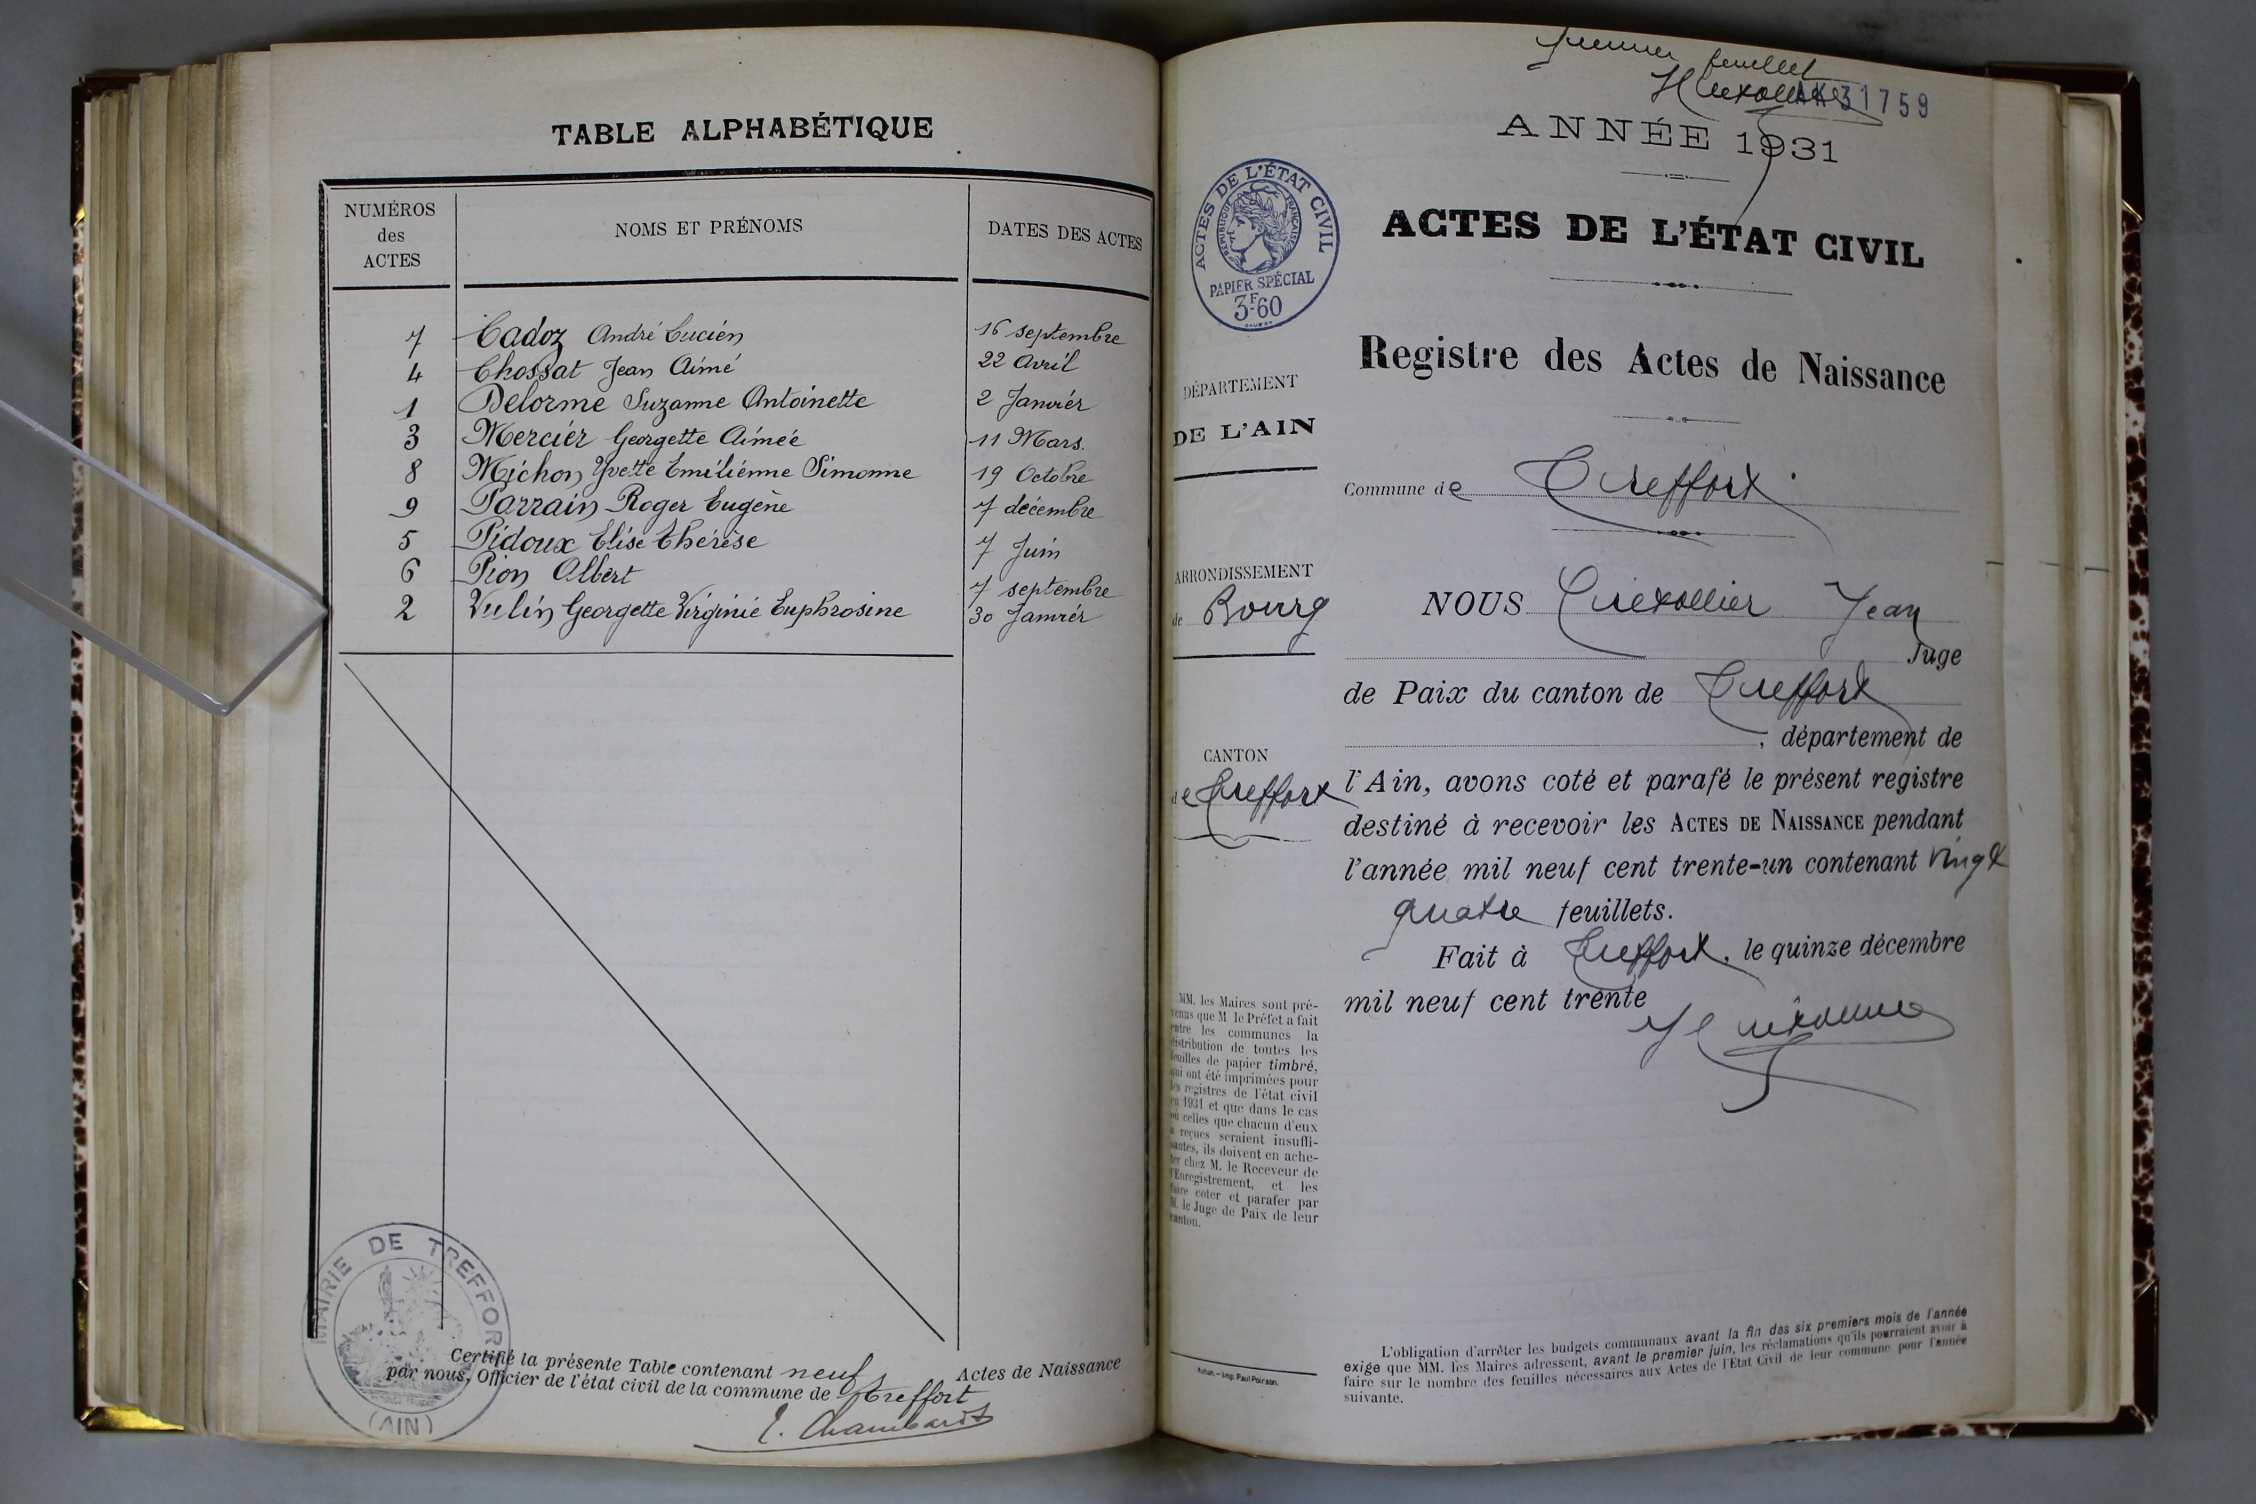 TABLE ALPHABÉTIQUE
NUMÉROS des ACTES NOMS ET PRÉNOMS DATES DES ACTES
7 Cadoz André Lucien 16 septembre
4 Chossat Jean Aimé 22 Avril
1 Delorme Suzanne Antoinette 2 Janvier
3 Mercier Georgette Aimée 11 Mars.
8 Michon Yvette Emiliénne Simonne 19 Octobre
9 Parrain Roger Eugène 7 décembre
5 Pidoux Elise Thérèse 7 Juin
6 Pion Albert 7 septembre
2 Vulin Georgette Virginie Euphrosine 30 Janvier
MAIRIE DE TREFFORT
(AIN)
Certifié la présente Table contenant neuf Actes de Naissance
par nous, Officier de l'état civil de la commune de Treffort
E. Chambard
Premier feuillet
31759
ANNÉE 1931
ACTES DE L'ÉTAT CIVIL
RÉPUBLIQUE FRANÇAISE
PAPIER SPÉCIAL
3F60
ACTES DE L'ÉTAT CIVIL
Registre des Actes de Naissance
DÉPARTEMENT
DE L'AIN
Commune de Treffort
ARRONDISSEMENT
de Bourg
CANTON
de Treffort
NOUS Jean
Juge
de Paix du canton de Treffort
, département de
l'Ain, avons coté et parafé le présent registre
destiné à recevoir les ACTES DE NAISSANCE pendant
l'année mil neuf cent trente-un contenant vingt
quatre feuillets.
Fait à Treffort, le quinze décembre
mil neuf cent trente
MM. les Maires sont pré-
venus que M. le Préfet a fait
entre les communes la
distribution de toutes les
feuilles de papier timbré,
qui ont été imprimées pour
les registres de l'état civil
en 1931 et que dans le cas
où celles que chacun d'eux
a reçues seraient insuffi-
santes, ils doivent en ache-
ter chez M. le Receveur de
l'Enregistrement, et les
faire coter et parafer par
M. le Juge de Paix de leur
canton.
Imp. Paul Poirson.
L'obligation d'arrêter les budgets communaux avant la fin des six premiers mois de l'année
exige que MM. les Maires adressent, avant le premier juin, les réclamations qu'ils pourraient avoir à
faire sur le nombre des feuilles nécessaires aux Actes de l'Etat Civil de leur commune pour l'année
suivante.